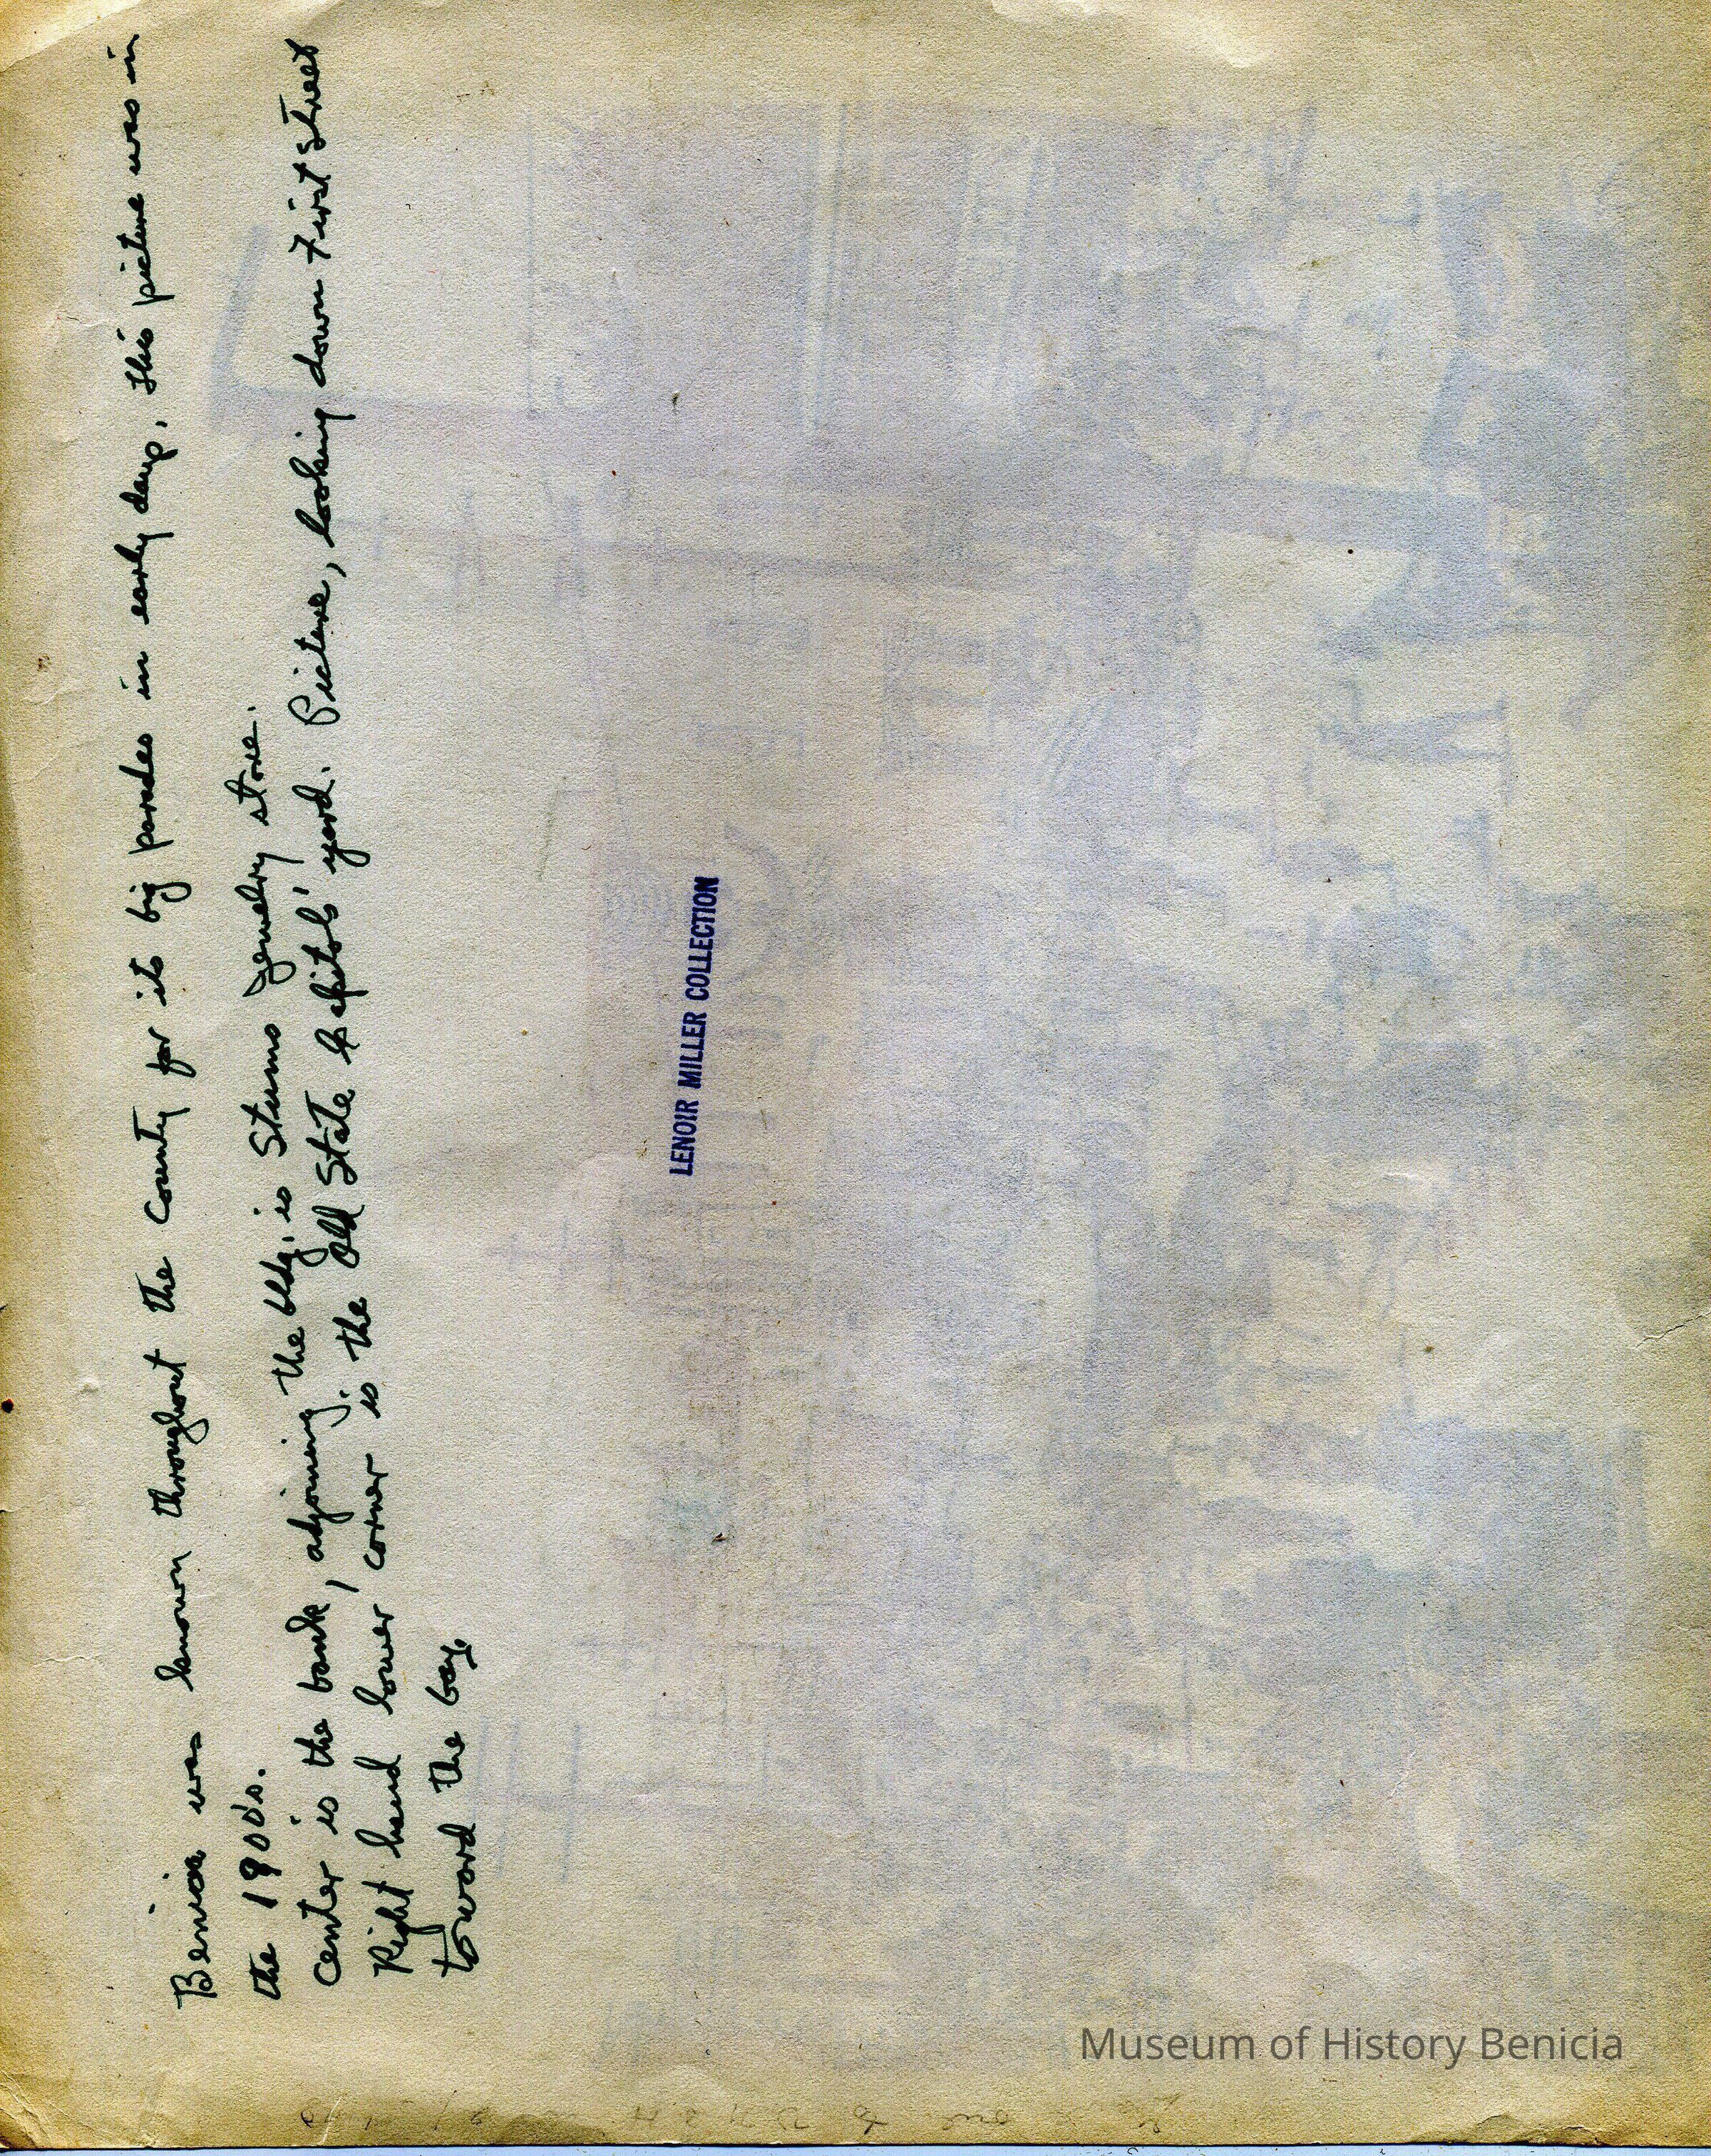 Benicia was known throughout the County for its big parades in early days, this picture was in
the 1900s.
Center is the bank, adjoining the bldg. is Stumms Jewelry store.
Right hand lower corner is the Old State Capitols' yard. Picture, looking down First Street
toward the bay.
LENOIR MILLER COLLECTION
Museum of History Benicia